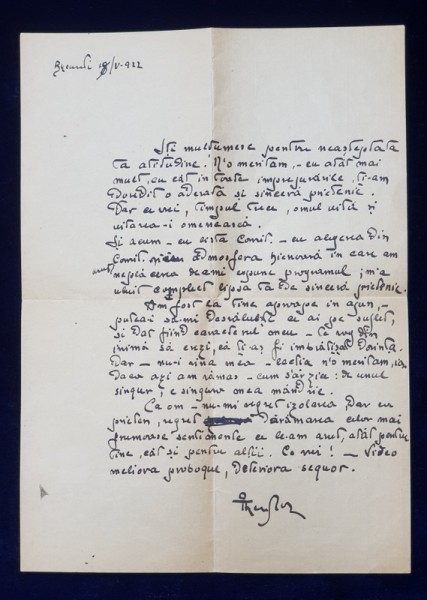 18/V-922
Îți multumesc pentru neașteptata
ta atitudine. N'o meritam, - cu atât mai
mult, cu cât în toate împrejurările, ți-am
dovedit o adevărată și sinceră prietenie.
Dar ce vrei, timpul trece, omul uită și
uitarea-i omenească.
Și acum - cu ocazia - cu alegerea din
Comit. atmosfera în care am
expune programul, m'a
uimit complect lipsa ta de sinceră prietenie.
Am fost la tine aproape în ajun, -
puteai să-mi dezvălui ce ai pe suflet,
și dat fiind caracterul meu - te rog din
inimă să crezi, că ți-aș fi îmbrățișat dorința.
Dar - nu-i vina mea - n'o meritam, iar
daca azi am rămas - cum s'ar zice: de unul
singur, e singura mea mândrie.
Ca om - nu-mi regret izolarea, dar ca
prieten, regret dărâmarea celor mai
frumoase sentimente ce le-am avut, atât pentru
tine, cât și pentru alții. Ce vrei! - Video
meliora proboque, deteriora sequor.